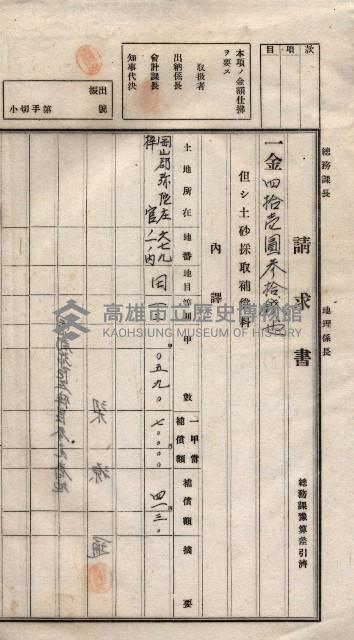 款
項
目
本項ノ金額仕拂
ヲ要ス
取扱者
出納係長
會計課長
知事代決
振出
第 號
小切手
總務課長
地理係長
總務課豫算差引濟
請求書
一金四拾壱圓参拾銭也
但シ土砂採取補償料
內譯
土地所在
地番
地目
等則
甲數
一甲當補償額
補償額
摘要
岡山郡弥陀庄
六七九
田
一
〇五九〇
七〇〇〇〇
四一三〇
高雄市立歷史博物館
KAOHSIUNG MUSEUM OF HISTORY